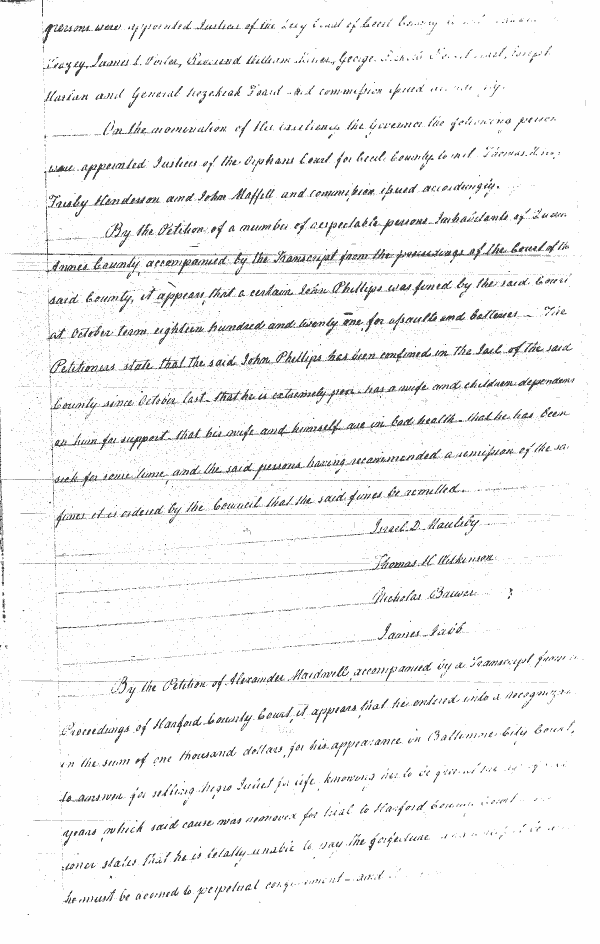 persons were appointed Justices of the Levy Court of Cecil County to wit
Veazey, James L. Porter, Reverend William George Joseph
Harlan and General Hezekiah Foard and commission issued accordingly.
On the nomination of His Excellency the Governor the following persons
were appointed Justices of the Orphans Court for Cecil County to wit Thomas
Frisby Henderson and John Maffett and commission issued accordingly.
By the Petition of a number of respectable persons Inhabitants of Queen
Annes County, accompanied by the Transcript from the proceedings of the Court of the
said County, it appears that a certain John Phillips was fined by the said Court
at October term eighteen hundred and twenty one, for assaults and batteries – The
Petitioners state that the said John Phillips has been confined in the Jail of the said
County since October last – that he is extremely poor – has a wife and children dependent
on him for support, that his wife and himself are in bad health – that he has been
sick for some time, and the said persons having recommended a remission of the sa
fines it is ordered by the Council that the said fines be remitted.
Israel D. Maulsby
Thomas H. Wilkinson
Nicholas Brewer
James
By the Petition of Alexander Mardwell, accompanied by a Transcript from
Proceedings of Harford County Court, it appears that he entered into a recognizance
in the sum of one thousand dollars, for his appearance in Baltimore City Court,
to answer for selling Negro Juliet for life, knowing her to be
years, which said cause was removed for trial to Harford County Court
ioner states that he is totally unable to pay the forfeiture
he must be doomed to perpetual confinement – and